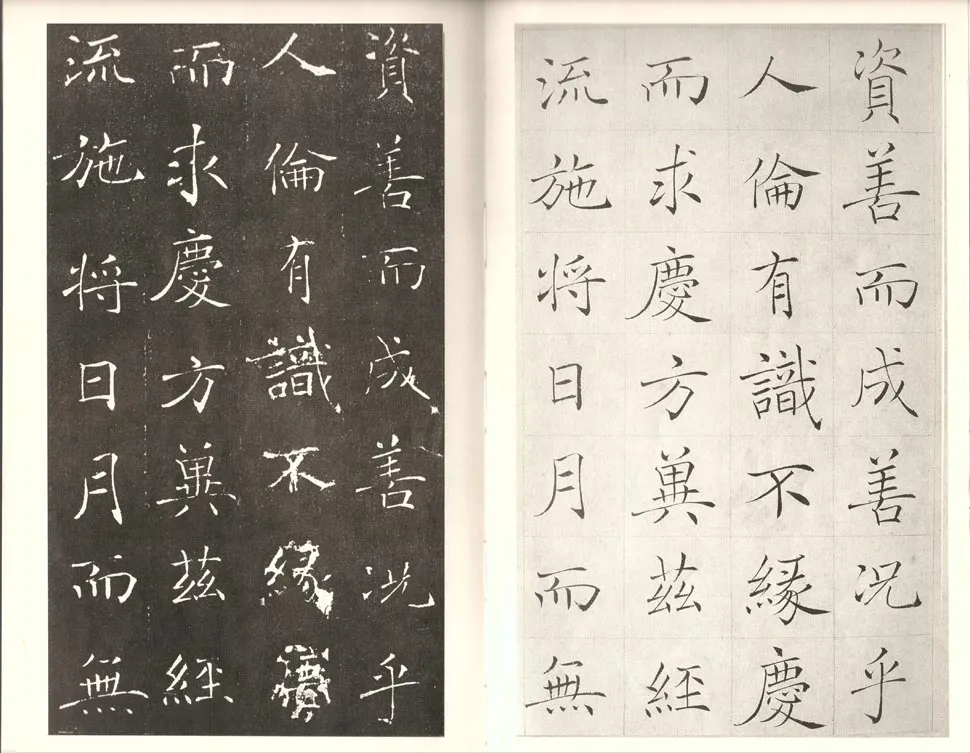 資善而成善况乎
人倫有識不緣慶
而求慶方冀茲經
流施将日月而無
資善而成善况乎
人倫有識不緣慶
而求慶方冀茲經
流施将日月而無